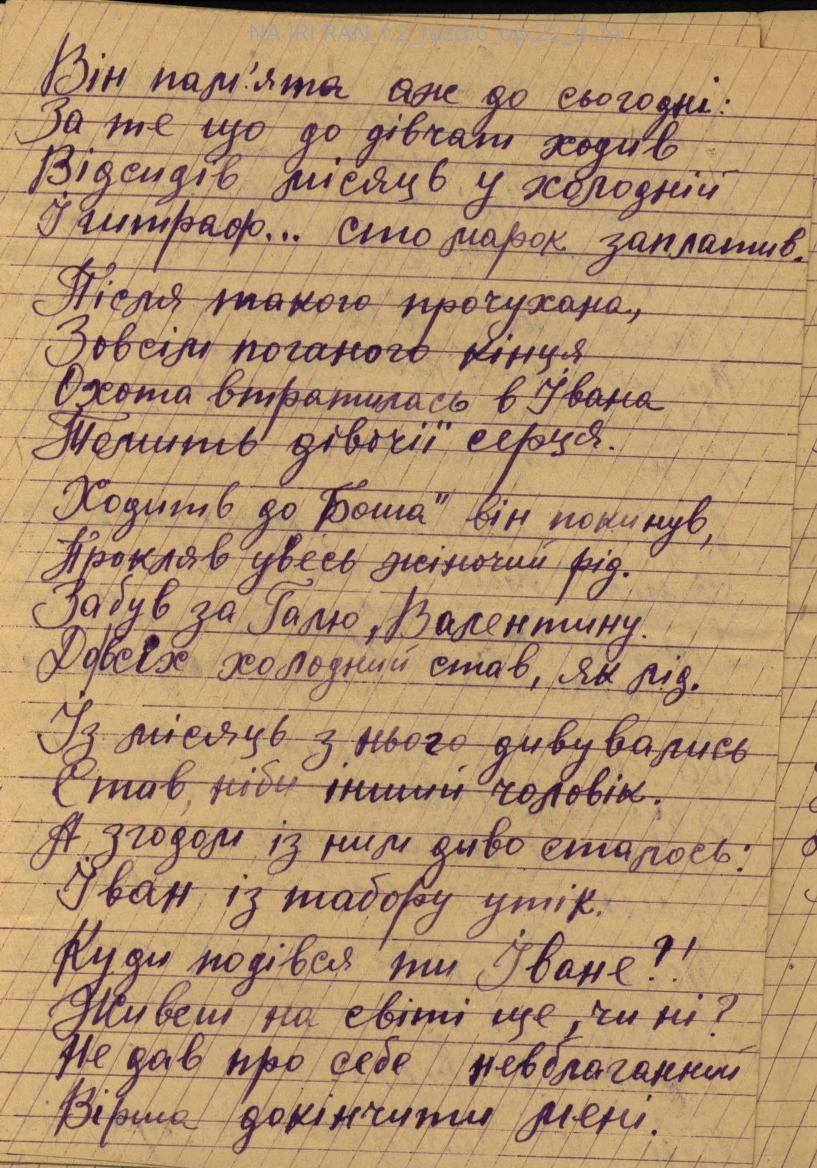 NA IRI RAN_f.2_razd.6_op.22_d.74
Він пам'ята аж до сьогодні:
За те що до дівчат ходив
Відсидів місяць у холодній
І штраф... сто марок заплатив.
Після такого прочухана,
Зовсім поганого кінця
Охота втратилась в Івана
Томить дівочії серця.
Ходить до "Боша" він покинув,
Прокляв увесь жіночий рід.
Забув за Галю, Валентину.
До всіх холодний став, як лід.
Із місяць з нього дивувались
Став, ніби інший чоловік.
А згодом із ним диво сталось:
Іван із табору утік.
Куди подівся ти Іване?!
Живеш на світі ще, чи ні?
Не дав про себе невблаганний
Вірша докінчити мені.